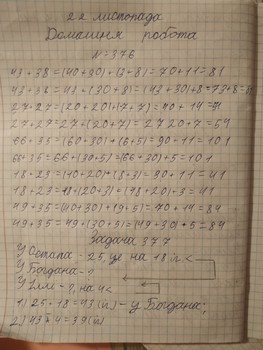 22 листопада
Домашня робота
№376
43+38=(40+30)+(3+8)=70+11=81
43+38=43+(30+8)=(43+30)+8=73+8=81
27+27=(20+20)+(7+7)=40+14=54
27+27=27+(20+7)=2720+7=54
66+35=(60+30)+(6+5)=90+11=101
66+35=66+(30+5)=(66+30)+5=101
18+23=(10+20)+(8+3)=30+11=41
18+23=18+(20+3)=(18+20)+3=41
49+35=(40+30)+(9+5)=70+14=84
49+35=49+(30+5)=(49+30)+5=84
Задача 377
У Остапа - 25, це на 18 л. <
У Богдана - ?
У Іллі - ?, на 4 <
1) 25+18=43(л) - у Богдана;
2) 43-4=39(л)